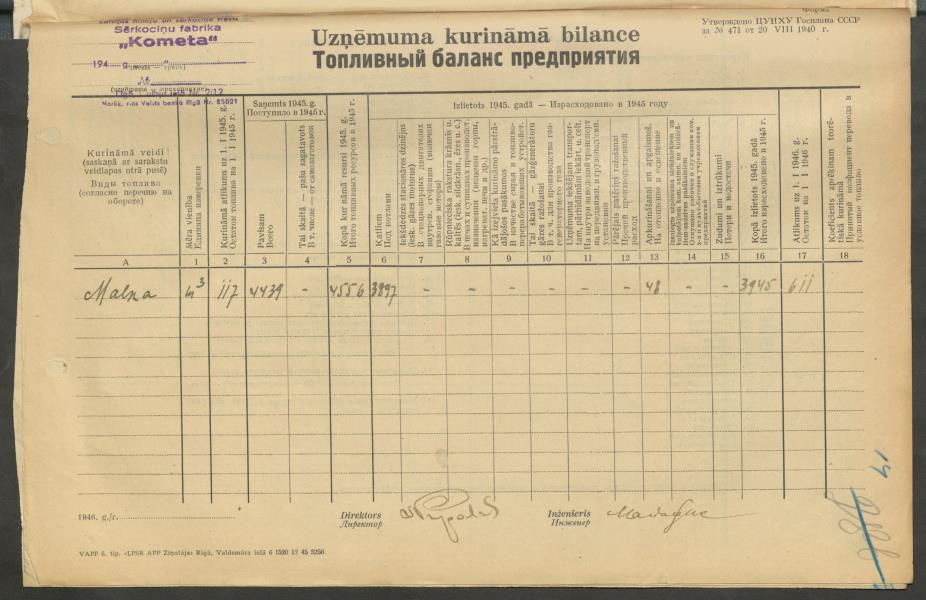 Форма
Sērkociņu fabrika
„Kometa“
194 g. "
№
Norēķ. r-ns Valsts bankā Rīgā Nr. 85021
Утверждено ЦУНХУ Госплана СССР
за № 471 от 20 VIII 1940 г.
Uzņēmuma kurināmā bilance
Топливный баланс предприятия
Kurināmā veidi
(saskaņā ar sarakstu
veidlapas otrā pusē)
Виды топлива
(согласно перечню на
обороте)
Mēra vienība
Единица измерения
Kurināmā atlikums uz 1. I 1945. g.
Остаток топлива на 1 I 1945 г.
Saņemts 1945. g.
Поступило в 1945 г.
Pavisam
Всего
Tai skaitā — pašu sagatavots
В т. числе — от самозаготовок
Kopā kurināmā resursi 1945. g.
Итого топливных ресурсов в 1945 г.
Izlietots 1945. gadā — Израсходовано в 1945 году
Katliem
Под котлами
Iekšdedzes stacionāros dzinējos
(iesk. gāzes motorus)
В стационарных двигателях
внутрен. сгорания (включая
газовые моторы)
Rūpnieciska rakstura krāsnīs u.
В печах и сушилках производст.
назначения (включая горны,
нагреват. печи и др.)
Kā izejviela kurināmo pārstrā-
dājošos iestādījumos
В качестве сырья в топливо-
перерабатывающих устройст.
Tai skaitā — gāzģenerātoru
gāzes ražošanai
В т. ч. для производства газ-
генераторного газа
Uzņēmuma iekšējam transpor-
tam, pārbīdāmām iekārt. u. celt.
На внутризаводской транспорт
на передвижн. и грузопод'ем.
установки
Pārējais patēriņš ražošanai
Прочий производственный
расход
Apkurināšanai un apgaismoš.
На отопление и освещение
Zudumi un iztrūkumi
Потери и недостачи
Kopā izlietots 1945. gadā
Итого израсходовано в 1945 г.
Atlikums uz 1. I 1946. g.
Остаток на 1 I 1946 г.
Koeficients aprēķinam teorē-
tiskā kurināmā
Принятый коэффициент перевода в
условное топливо
A 1 2 3 4 5 6 7 8 9 10 11 12 13 14 15 16 17 18
Malka m³ 117 4439 - 4556 3897 - - - - - - 48 - - 3945 611
1946. g./г.
Directors
Директор
Inženieris
Инженер
VAPP 6. tip. «LPSR APP Ziņotājs» Rīgā, Valdemāra ielā 6 1520 12 45 5250